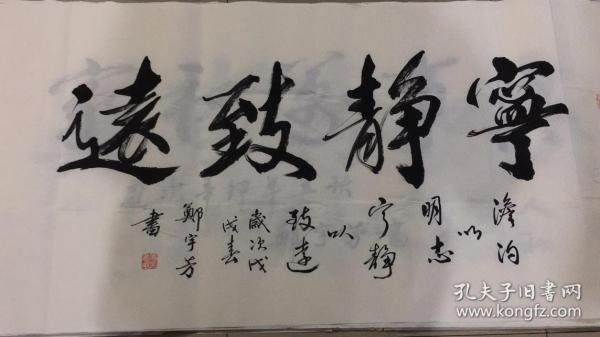 寧靜致遠
澹泊
以
明志
宁靜
以
致遠
歲次戊
戌春
鄭宇芳
書
孔夫子旧书网
www.kongfz.com